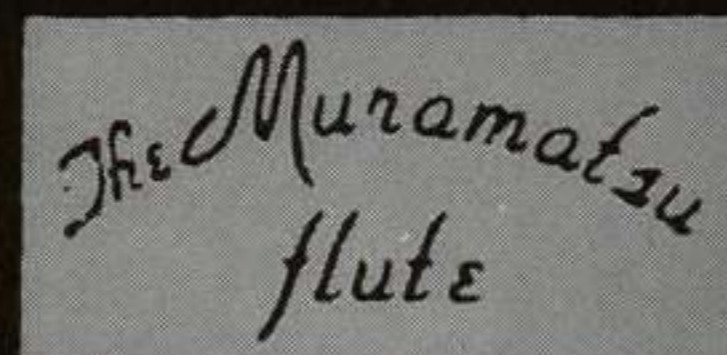 The Muramatsu
flute